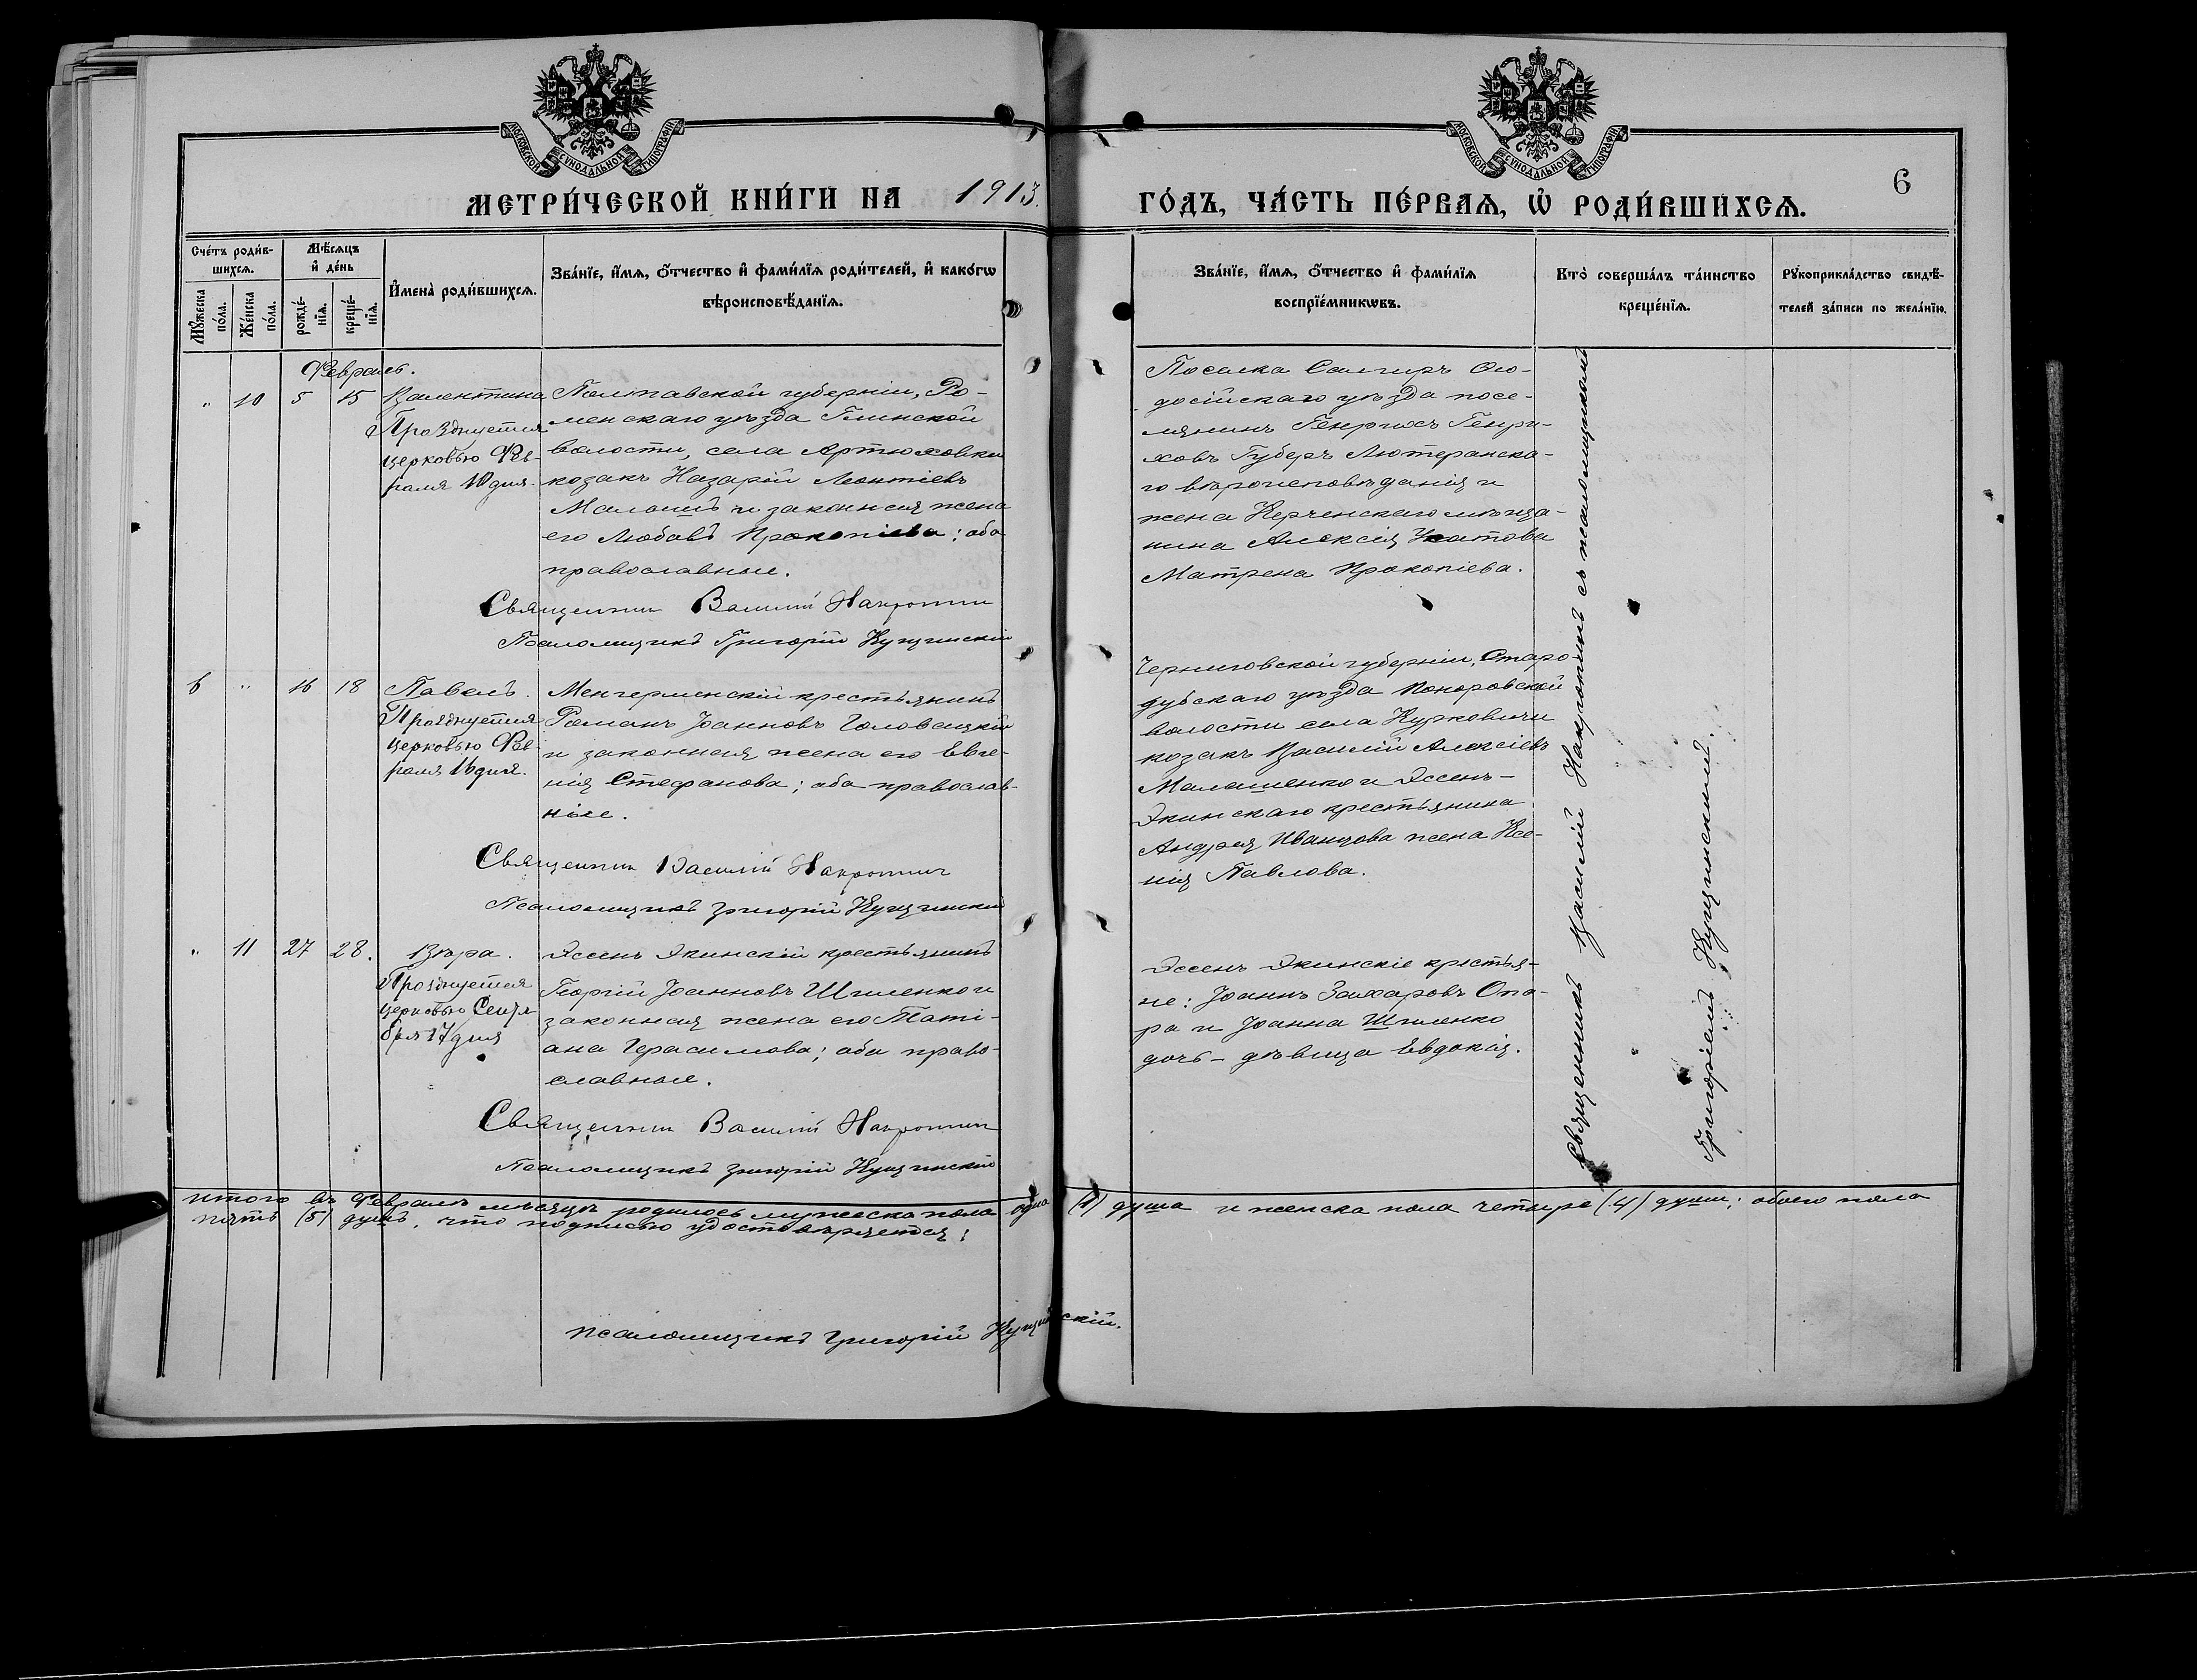 МОСКОВСКОЙ СѴНОДАЛЬНОЙ ТИПОГРАФІИ
МОСКОВСКОЙ СѴНОДАЛЬНОЙ ТИПОГРАФІИ
МЕТРИ́ЧЕСКОЙ КНИ́ГИ НА 1913.
ГО́ДЪ, ЧА́СТЬ ПЕ́РВАѦ, Ѡ҆ РОДИ́ВШИХСѦ.
6
Сче́тъ роди́в-
шихсѧ.
Мꙋ́жеска
по́ла.
Же́нска
по́ла.
Мѣ́сѧцъ
и҆ де́нь
рожде́-
нїѧ.
креще́-
нїѧ.
И҆мена̀ роди́вшихсѧ.
Зва́нїе, и҆́мѧ, ѻ҆́тчество и҆ фами́лїѧ роди́телей, и҆ како́гѡ
вѣроисповѣ́данїѧ.
Зва́нїе, и҆́мѧ, ѻ҆́тчество и҆ фами́лїѧ
воспрїе́мникѡвъ.
Кто̀ соверша́лъ та́инство
креще́нїѧ.
Рꙋкоприкла́дство свидѣ́-
телей за́писи по жела́нїю.
Февраль.
" 10 5 15
Валентина
Празднуется
церковью Фев-
раля 10 дня.
Полтавской губерніи, Ро-
менскаго уѣзда Глинской
волости, села Артюховки
козакъ Назарій Леонтіевъ
Малышъ и законная жена
его Любовь Прокопіева; оба
православные.
Священник Василий Накропин
Псаломщикъ Григорій Кущинскій
Поселка Салгиръ Ѳео-
досійскаго уѣзда посе-
лянинъ Генрихъ Генри-
ховъ Губеръ Лютеранска-
го вѣроисповѣданія и
жена Керченскаго мѣща-
нина Алексія
Матрена Прокопіева.
6 " 16 18
Павелъ.
Празднуется
церковью Фев-
раля 16 дня.
Менгерменскій крестьянинъ
Романъ Іоанновъ Головацкій
и законная жена его Евге-
нія Стефанова; оба православ-
ные.
Священник Василий Накропин
Псаломщикъ Григорій Кущинскій
Черниговской губерніи, Старо-
дубскаго уѣзда Поноровской
волости села Курковичи
козакъ Василій Алексіевъ
Малашенко и Эссенъ-
Экинскаго крестьянина
Андрея Иванцова жена Ксе-
нія Павлова.
" 11 27 28.
Вѣра.
Празднуется
церковью Сентя-
бря 17 дня
Эссенъ Экинскій крестьянинъ
Георгій Іоанновъ Шиленко и
законная жена его Тати-
ана Герасимова; оба право-
славные.
Священник Василий Накропин
Псаломщикъ Григорій Кущинскій
Эссенъ Экинскіе крестья-
не: Іоаннъ Захаровъ Опа-
ра и Іоанна Шиленко
дочь - дѣвица Евдокія.
Священникъ Василій Накропинъ съ псаломщикомъ
Григоріемъ Кущинскимъ.
Итого въ Февралѣ мѣсяцѣ родилось мужеска пола одна (1) душа и женска пола четыре (4) души; обоего пола
пять (5) душъ, что подписью удостовѣряется:
псаломщикъ Григорій Кущинскій.